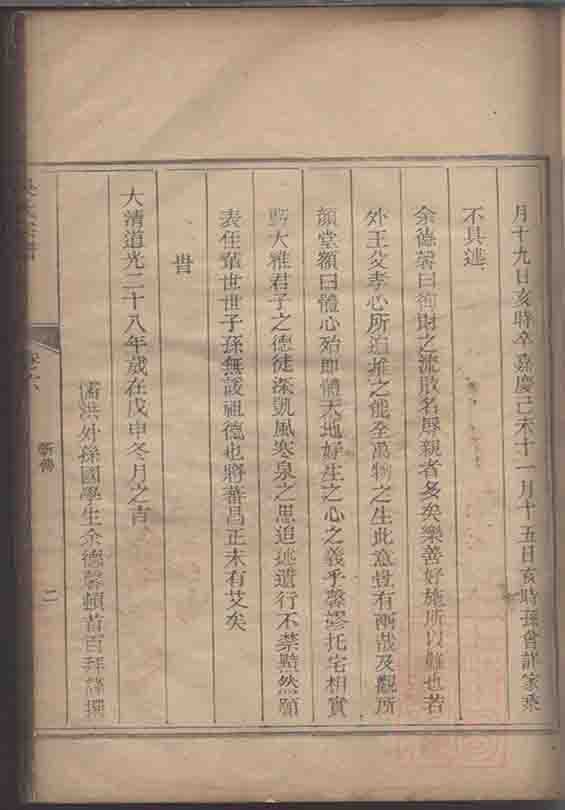 月十九日亥時卒嘉慶己未十一月十五日亥時孫曾詳家乘
不具述
余德馨曰徇財之流敗名辱親者多矣樂善好施所以難也若
外王父孝心所迫推之能全萬物之生此意豈有兩哉及觀所
顏堂額曰體心殆即體天地好生之心之義乎馨謬托宅相實
大雅君子之德徒深凱風寒泉之思追述遺行不禁黯然願
表任輩世世子孫無諼祖德也將蕃昌正未有艾矣
旹
大清道光二十八年歲在戊申冬月之吉
洪外孫國學生余德馨頓首百拜謹撰
卷六
新傳
二